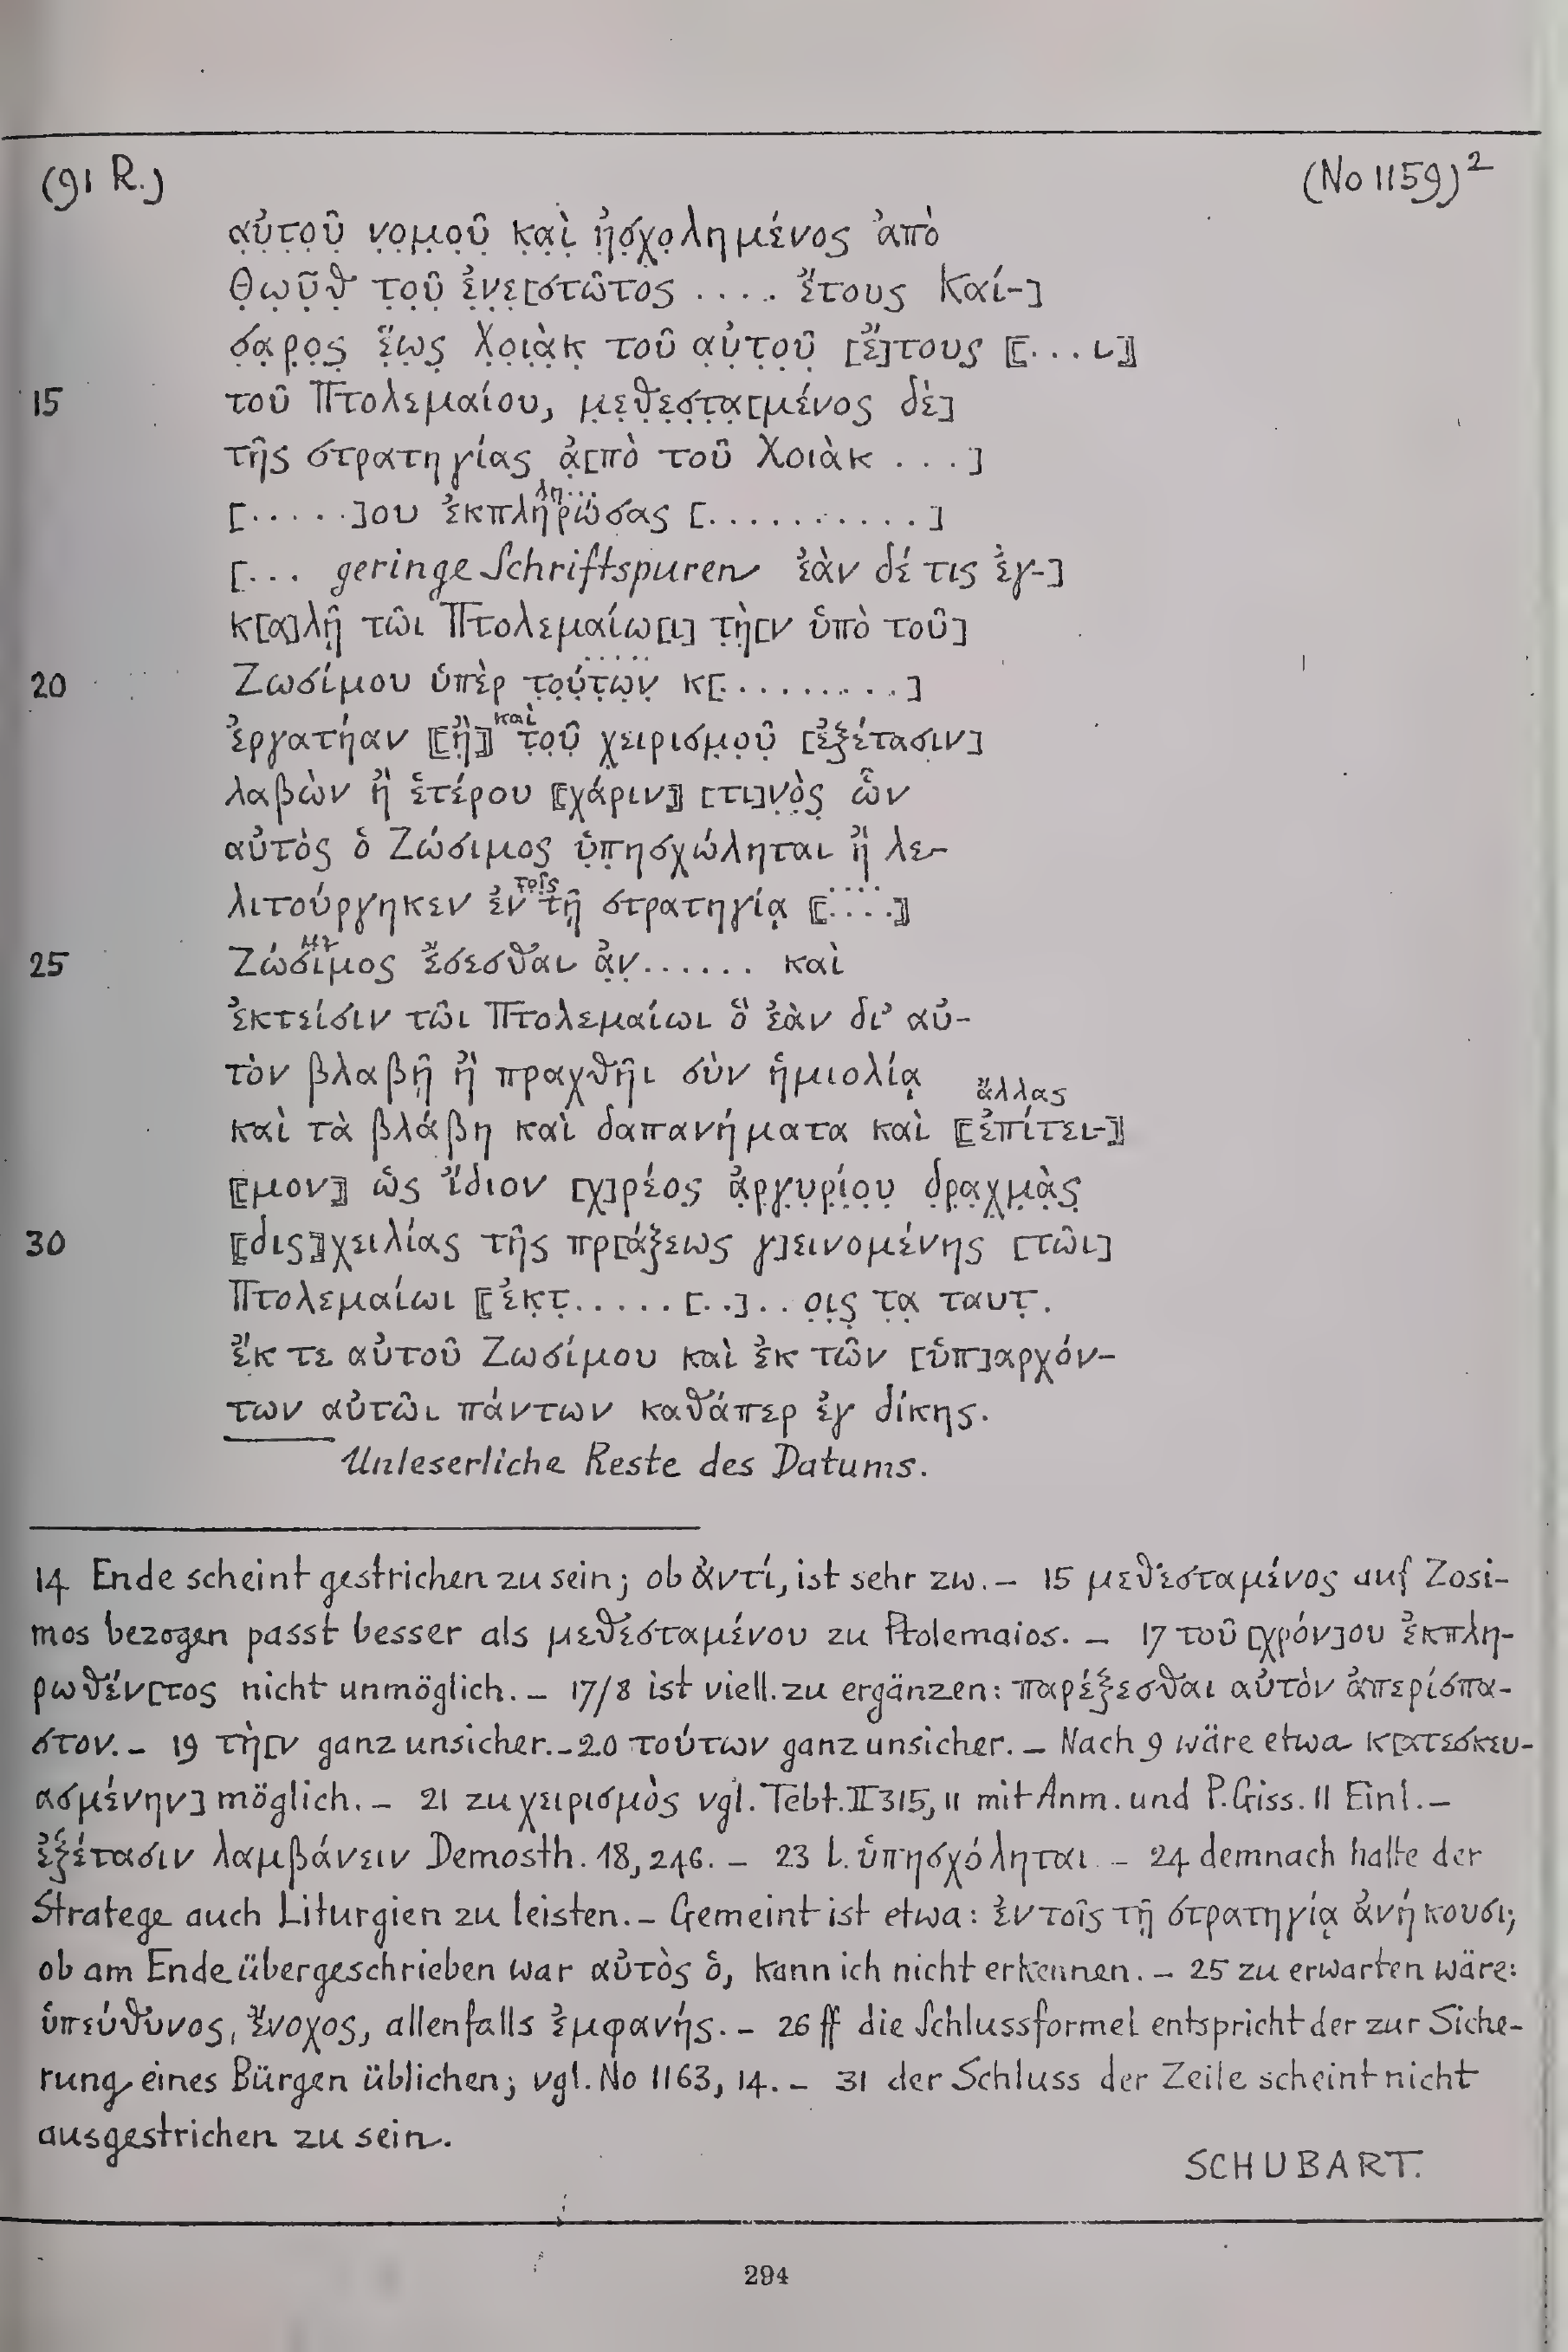 (91 R.)
(No 1159)²
α̣ὐ̣τ̣ο̣ῦ̣ ν̣ο̣μ̣ο̣ῦ̣ κ̣α̣ὶ̣ ἠ̣σ̣χ̣ο̣λημένος ἀπὸ
Θ̣ω̣ῦ̣θ̣ τ̣ο̣ῦ̣ ἐ̣ν̣ε̣[στῶτος .... ἔτους Καί-]
σ̣α̣ρ̣ο̣ς̣ ἕ̣ω̣ς̣ Χ̣ο̣ι̣ὰ̣κ̣ τοῦ α̣ὐ̣τ̣ο̣ῦ̣ [ἔ]τους ⟦...ι⟧
15 τοῦ Πτολεμαίου, μ̣ε̣θ̣ε̣σ̣τ̣α̣[μένος δὲ]
τῆς στρατηγίας ἀ̣[πὸ τοῦ Χοιὰκ ...]
λη...
[.....]ου ἐκπληρώσας [...........]
[... geringe Schriftspuren ἐὰν δέ τις ἐγ-]
κ[α]λῇ τῶι Πτολεμαίω[ι] τ̣ὴ̣[ν ὑπὸ τοῦ]
20 Ζωσίμου ὑπὲρ τ̣ο̣ύ̣τ̣ω̣ν̣ κ[.........]
καὶ
ἐργατήαν ⟦ἢ̣⟧ τ̣ο̣ῦ̣ χ̣ειρισμ̣ο̣ῦ̣ [ἐξέτασιν]
λαβὼν ἢ ἑτέρου ⟦χάριν⟧ [τι]ν̣ὸ̣ς̣ ὧν
αὐτὸς ὁ Ζώσιμος ὑ̣π̣ησχώληται ἢ λε-
τοῖς
λιτούργηκεν ἐν τῇ στρατηγίᾳ ⟦....⟧
25 Ζώσιμος ἔσεσθαι ἀ̣ν̣...... καὶ
ἐκτείσιν τῶι Πτολεμαίωι ὃ ἐὰν δι’ αὐ-
τὸν βλαβῇ ἢ πραχθῆι σὺν ἡμιολίᾳ
ἄλλας
καὶ τὰ βλάβη καὶ δαπανήματα καὶ ⟦ἐπίτει-⟧
⟦μον⟧ ὡς ἴδιον [χ]ρέος̣ ἀ̣ρ̣γ̣υ̣ρ̣ί̣ο̣υ̣ δ̣ρ̣α̣χ̣μ̣ὰ̣ς̣
30 ⟦δις⟧χειλίας τῆς πρ[άξεως γ]εινομένης [τῶι]
Πτολεμαίωι ⟦ἐκ̣τ̣.....[..]..ο̣ι̣ς̣ τ̣α̣ ταυτ̣.
ἔ̣κ τε αὐτοῦ Ζωσίμου καὶ ἐκ τῶν [ὑπ]αρχόν-
των αὐτῶι πάντων καθάπερ ἐγ δίκης.
Unleserliche Reste des Datums.
14 Ende scheint gestrichen zu sein; ob ἀντί, ist sehr zw. – 15 μεθεσταμένος auf Zosi-
mos bezogen passt besser als μεθεσταμένου zu Ptolemaios. – 17 τοῦ [χρόν]ου ἐκπλη-
ρωθέν[τος nicht unmöglich. – 17/8 ist viell. zu ergänzen: παρέξεσθαι αὐτὸν ἀπερίσπα-
στον. – 19 τὴ[ν ganz unsicher. – 20 τούτων ganz unsicher. – Nach 9 wäre etwa κ[ατεσκευ-
ασμένην] möglich. – 21 zu χειρισμὸς vgl. Tebt. II 315, 11 mit Anm. und P. Giss. 11 Einl. –
ἐξέτασιν λαμβάνειν Demosth. 18, 246. – 23 l. ὑπησχόληται – 24 demnach hatte der
Stratege auch Liturgien zu leisten. – Gemeint ist etwa: ἐν τοῖς τῇ στρατηγίᾳ ἀνήκουσι;
ob am Ende übergeschrieben war αὐτὸς ὁ, kann ich nicht erkennen. – 25 zu erwarten wäre:
ὑπεύθυνος, ἔνοχος, allenfalls ἐμφανής. – 26 ff die Schlussformel entspricht der zur Siche-
rung eines Bürgen üblichen; vgl. No 1163, 14. – 31 der Schluss der Zeile scheint nicht
ausgestrichen zu sein.
SCHUBART.
294